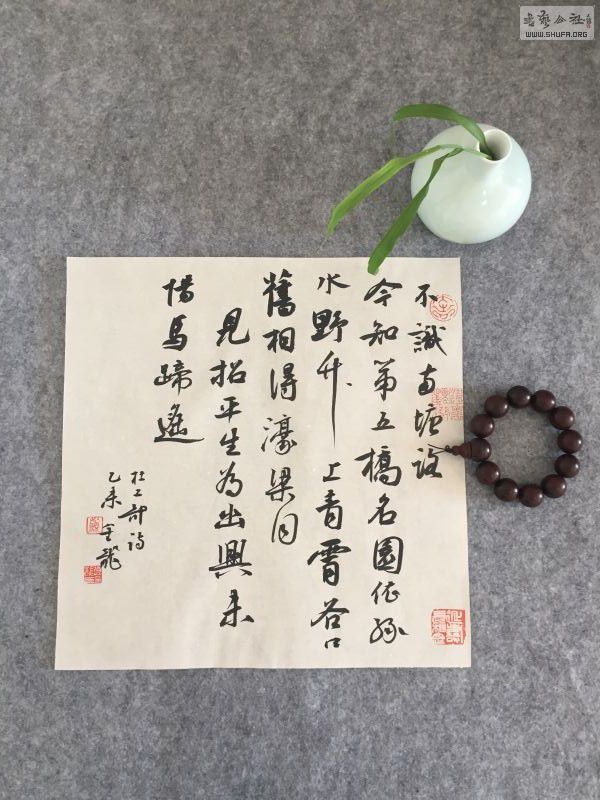 書藝公社
WWW.SHUFA.ORG
不識南塘路
今知第五橋名園依綠
水野竹上青霄谷口
舊相得濠梁同
見招平生為幽興未
惜馬蹄遙
杜工部詩
乙未 龍